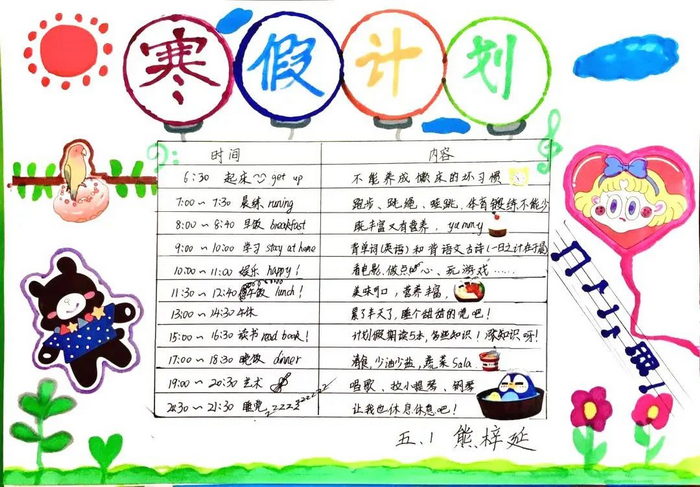 寒假计划
时间 内容
6:30 起床 get up 不能养成懒床的坏习惯
7:00~7:30 晨练 runing 跑步、跳绳、蛙跳、体育锻练不能少
8:00~8:40 早饭 breakfast 既丰富又有营养, yummy
9:00~10:00 学习 stay at home 背单词(英语)和背语文古诗(一日之计在于晨)
10:00~11:00 娱乐 happy! 看电影、做点心、玩游戏……
11:30~12:40 午饭 lunch! 美味可口,营养丰富,
13:00~14:30 午休 累了半天了,睡个甜甜的觉吧!
15:00~16:30 读书 read book! 计划假期读5本,知识!涨知识呀!
17:00~18:30 晚饭 dinner 清住,少油少盐,蔬菜 Sala
19:00~20:30 艺术 唱歌、拉小提琴、钢琴
20:30~21:30 睡觉 zzzzzzzzz 让我也休息休息吧!
五.1 熊梓延